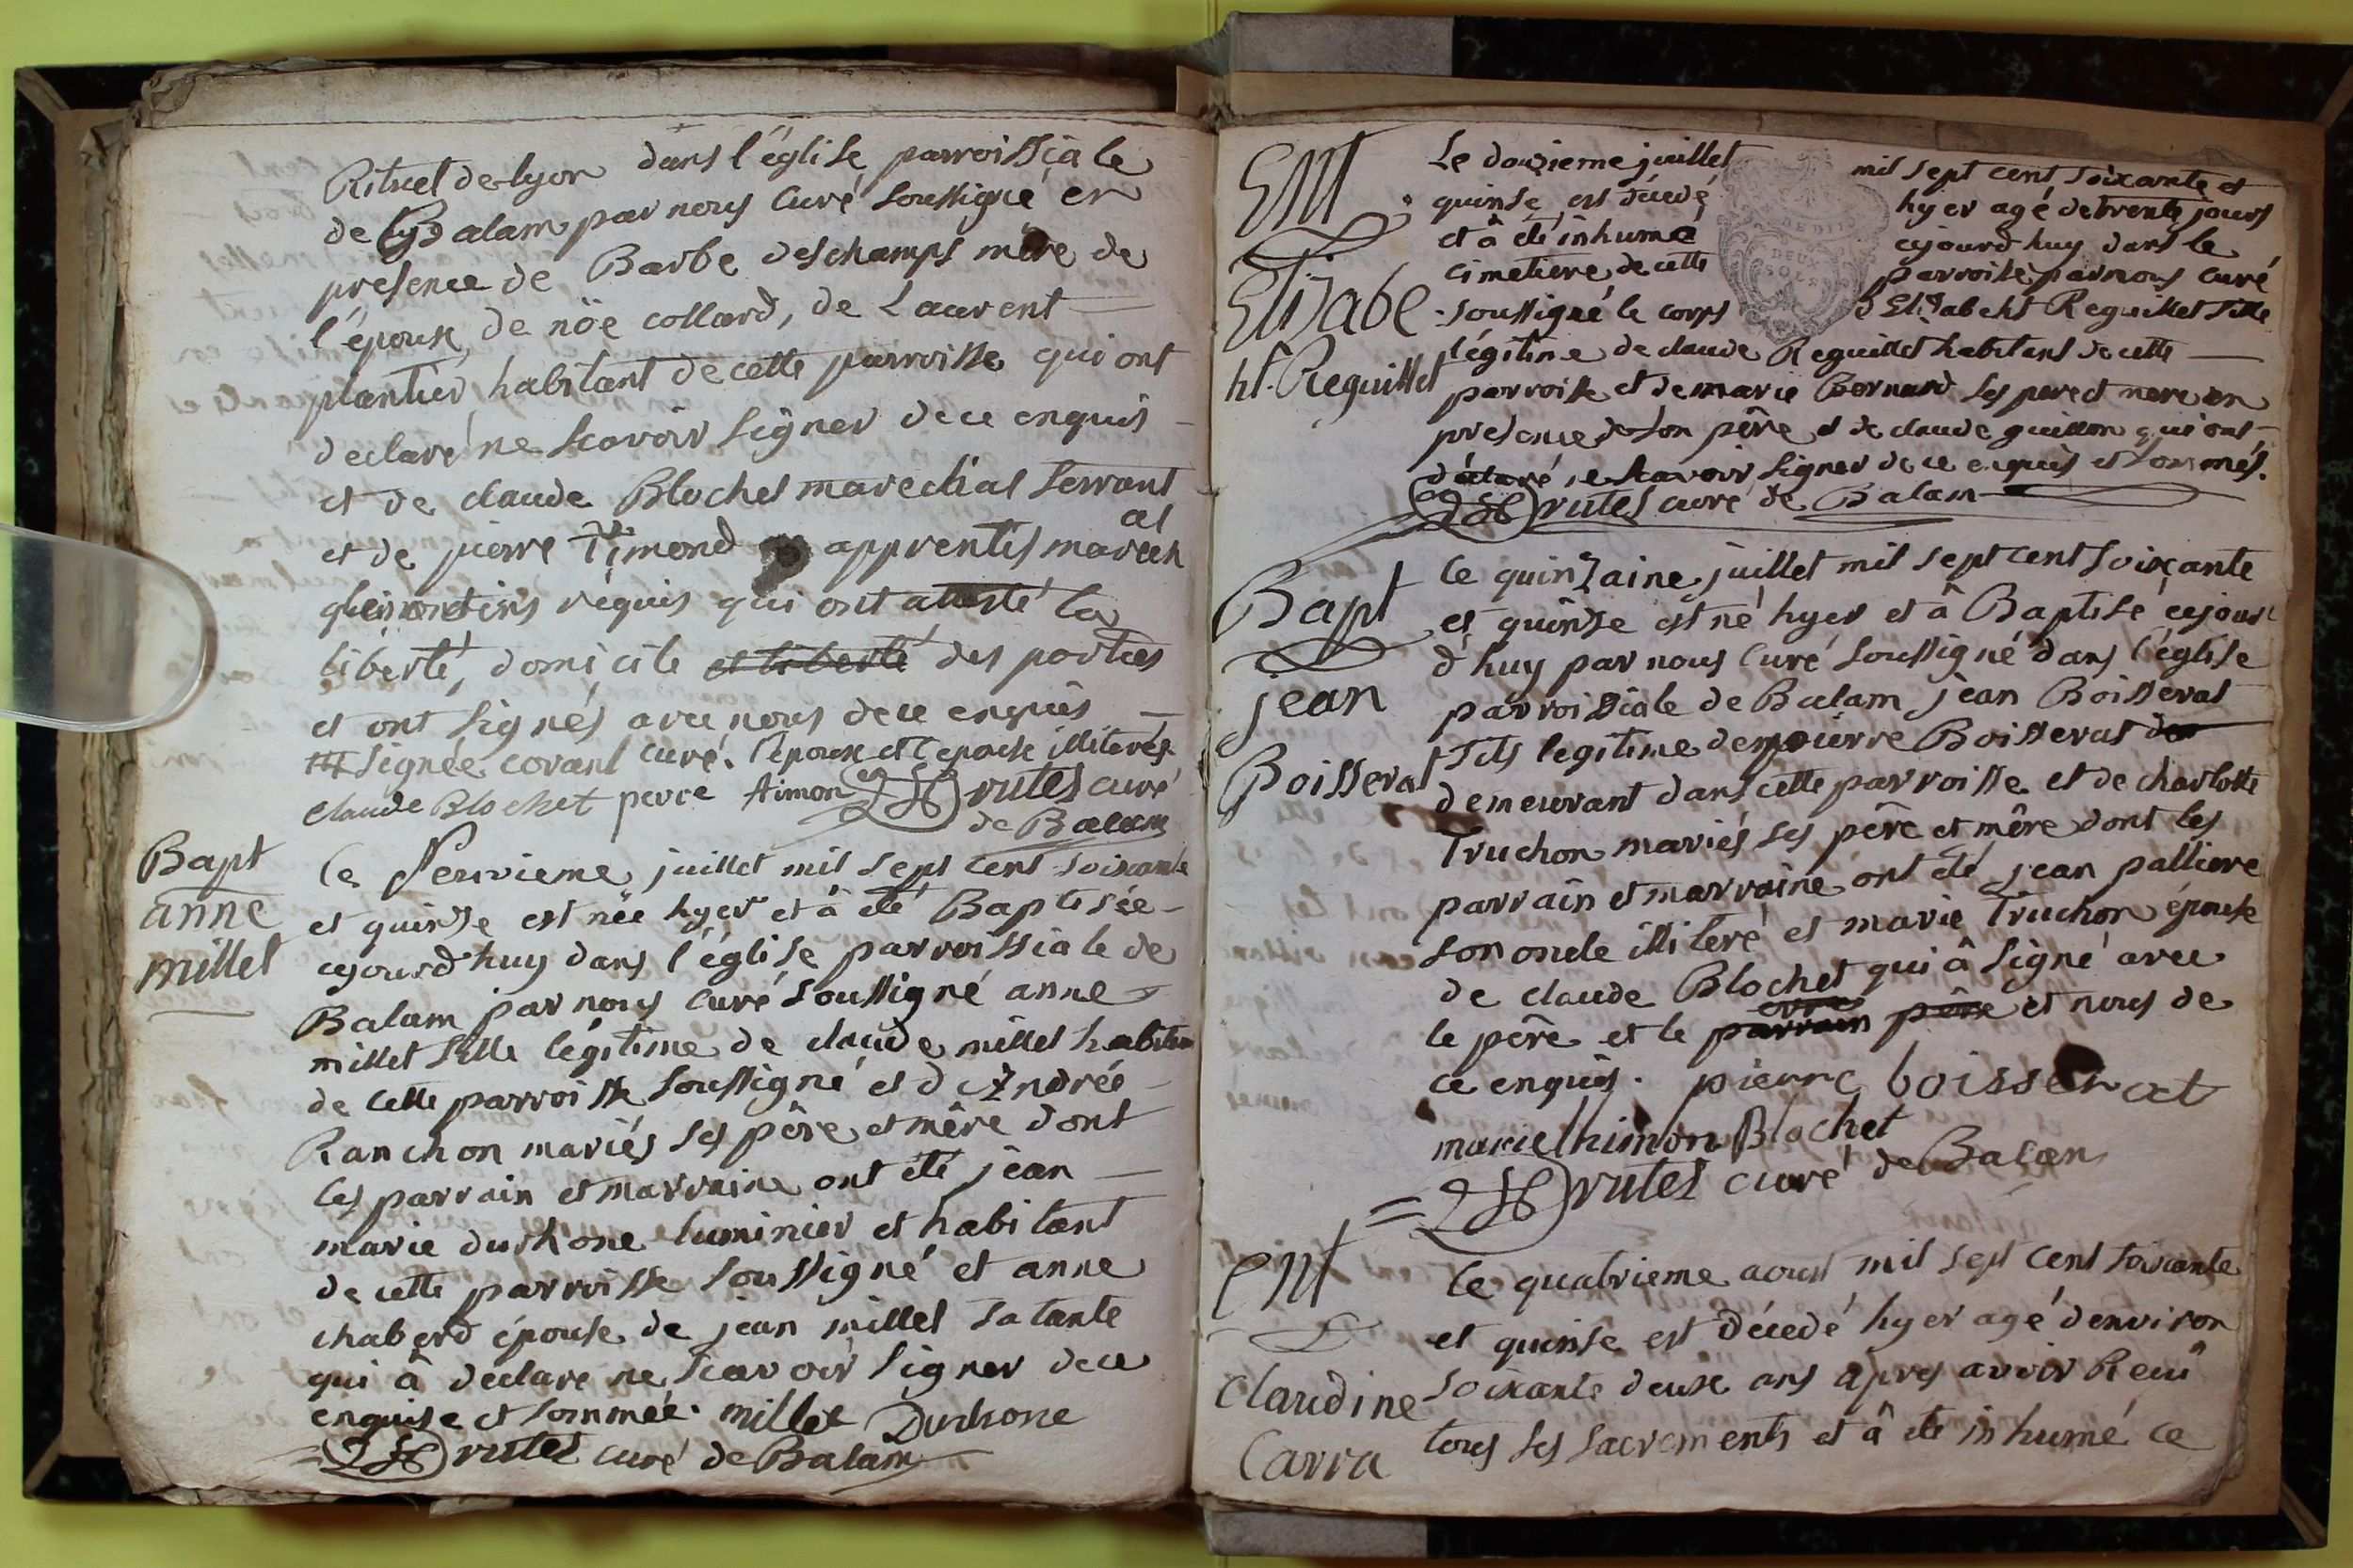 Rituel de lyon dans l'église parroissiale
de Balam par nous Curé soussigné en
presence de Barbe deschamps mère de
l'épouse, de nöe collard, de Laurent
plantier habitant de cette parroisse qui ont
declaré ne scavoir signer de ce enquis
et de claude Blochet marechal ferrant
et de pierre Timond apprentis marech
al
requis qui ont attesté la
liberté, domicile et liberté des parties
et ont signés avec nous de ce enquis
signée corant curé. l'époux et l'épouse illiterés
claude Blochet pierre timon rutet curé
de Balam
Bapt
anne
millet
Le Neuvieme juillet mil sept cent soixante
et quinse est née hyer et â été Baptisée
cejourd'huy dans l'église parroissiale de
Balam par nous curé soussigné anne
millet fille légitime de claude millet habitan
de cette parroisse soussigné et d'Andrée
Ranchon mariés ses pêre et mêre dont
les parrain et marraine ont été jean
marie durhone luminier et habitant
de cette parroisse soussigné et anne
chaberd épouse de jean millet sa tante
qui â declare ne scavoir signer de ce
enquise et sommée. millet Durhone
rutet curé de Balam
Ent
Elizabe
ht. Reguillet
Le douzieme juillet mil sept cent soixante et
quinse est décedé hyer agé de trente jours
et â été inhumé cejourd'huy dans le
cimetiere de cette parroisse par nous curé
soussigné le corps d'Elizabeht Reguillet fille
légitime de claude Reguillet habitant de cette
parroisse et de marie Bernard ses pere et mere en
presence de son pêre et de claude guillon qui ont
déclaré ne scavoir signer de ce enquis et sommés.
rutet curé de Balam
Bapt
jean
Boisserat
Le quinzaine juillet mil sept cent soixante
et quinse est né hyer et â Baptisé cejour
d'huy par nous Curé soussigné dans l'église
parroissiale de Balam jean Boisserat
fils legitime de pierre Boisserat
demeurant dans cette parroisse et de charlotte
Truchon mariés ses pêre et mêre dont les
parrain et marraine ont été jean palliere
son oncle illiteré et marie Truchon épouse
de claude Blochet qui â signé avec
le père et le parrain père et nous de
ce enquis. pierre boisserat
marie thimon Blochet
rutet curé de Balan
Ent
Claudine
Carra
Le quatrieme aoust mil sept cent soixante
et quinse est décedé hyer agé d'environ
soixante deux ans apres avoir Recu
tous ses sacrements et â été inhumé ce